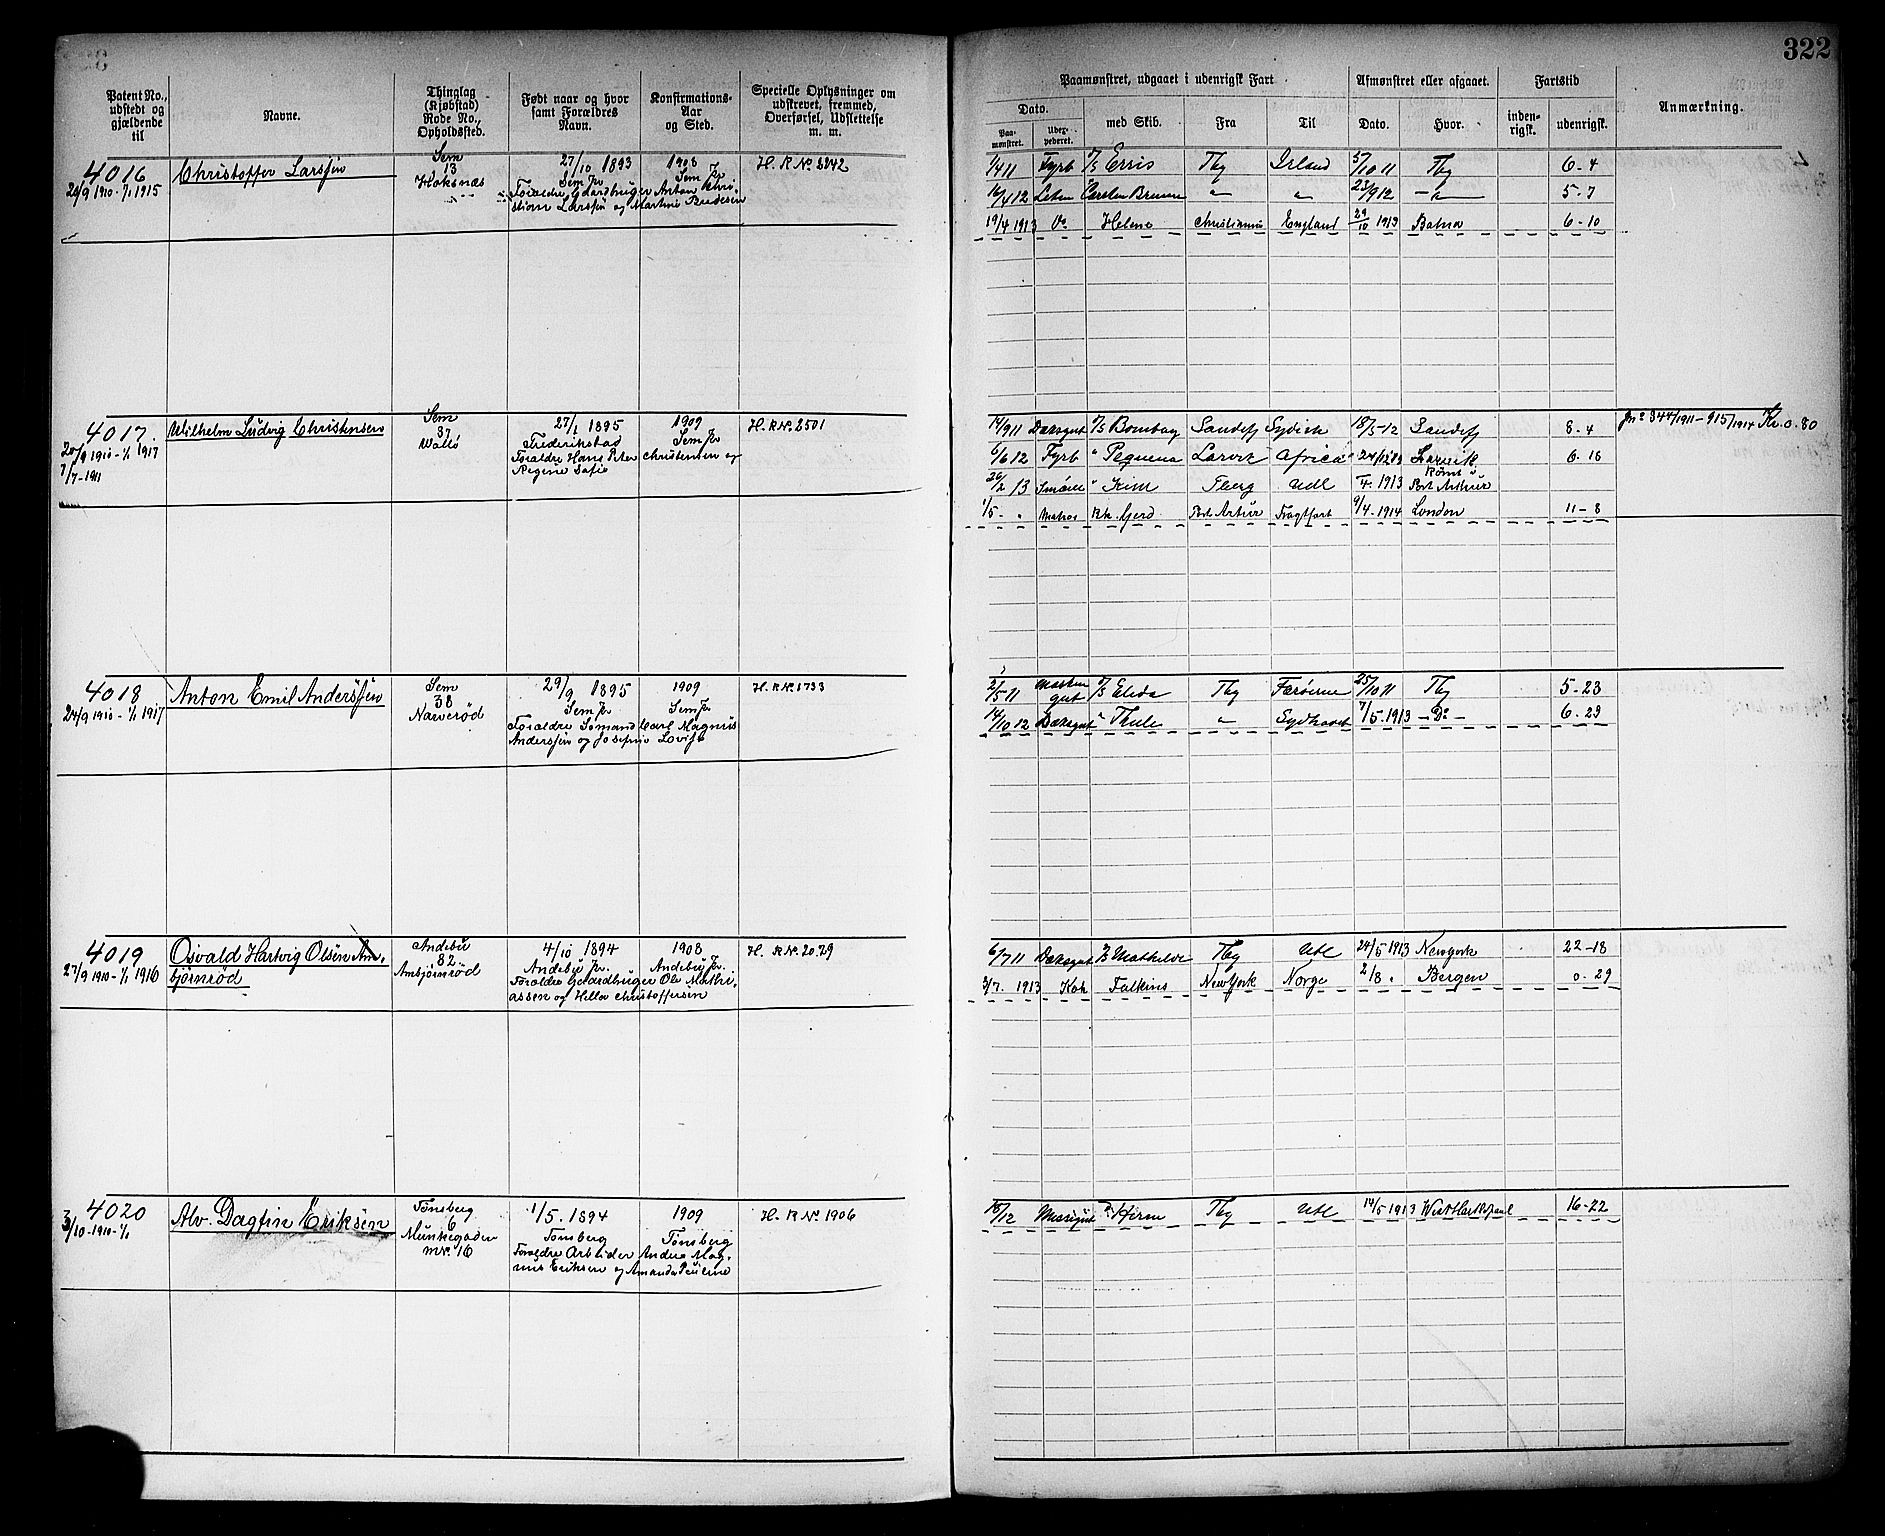 322
Patent No., udstedt og gjældende til
Navne.
Thinglag (Kjøbstad) Rode No., Opholdssted.
Født naar og hvor samt Forældres Navn.
Konfirmations-Aar og Sted.
Specielle Oplysninger om udskrevet, fremmed, Overførsel, Udslettelse m. m.
Paamønstret, udgaaet i udenrigsk Fart
Dato.
Paa-mønstret.
med Skib.
Fra
Til
Afmønstret eller afgaaet.
Dato.
Hvor.
Fartstid
inden-rigsk.
udenrigsk.
Anmærkning.
4016
24/9 1910 - 1/1 1915
Christoffer Larssen
Sem
13
Hoksnæs
27/10 1893
Sem Pr
Forældre Gaardbruger Anton Chri-
stian Larssen og Martine Bredesen
1908
Sem Pr
H. R No 2242
1/4 11 Fyrb D/S Erris Tbg Irland 5/10 11 Tbg 6-4
16/4 12 " " 23/9 12 5-7
19/4 1913 Do Helene Christiania England 29/10 1913 6-10
4017
20/9 1910 - 1/1 1917
7/7-1911
Wilhelm Ludvig Christensen
Sem
37
ValLø
27/1 1895
Frederikstad
Forældre Hans Peter Christensen og
Regine Sofie
1909
Sem Pr
H. R No. 2501
14/9 11 Dæksgut D/S Bombay Sandefj Sydish 18/5-12 Sandefj 8-4
6/6 12 Fyrb " Pequena Larvik Africa Larvik 6-16
26/2 13 " Kim Tberg Udl 1913 Port Arthur
1/5 - " Matros Bk. Gjerd Port Artur Fragtfart 9/4-1914 London 11-8
Jno 344/1911 - 915/1914 Kr. 0.80
4018
24/9 1910 - 1/1 1917
Anton Emil Anderssen
Sem
38
Narverød
29/9 1895
Sem Pr
Forældre Sømand Carl Magnus
Anderssen og Josefine Lovise
1909
Sem Pr
H. R No. 1733
2/5 11 Maskin gut D/S Elida Tbg Færøerne 25/10 11 Tbg 5-23
14/10 12 Dæksgut " Thule " Sydhavet 7/5.1913 - Do - 6-23
4019
27/9 1910 - 1/1 1916
Osvald Hartvig Olsen An-
bjørnrød
Andebu
82
Anbjørnrød
4/10 1894
Andebu Pr.
Forældre Gaardbruger Ole Mathi-
assen og Helle Christoffersen
1908
Andebu Pr.
H. R No. 2079
6/7 11 Dæksgut Mathilde Tbg Utl 24/5 1913 Newyork 22-18
3/7. 1913 Kok Falkins NewYork Norge 2/8 " Bergen 0-29
4020
3/10-1910-1/1
Alv. Dagfin Eriksen
Tønsberg
6
Munkegaden
No. 16
1/5. 1894
Tønsberg
Forældre Arbeider Anders Mag-
nus Eriksen og Amanda Pauline
1909
Tønsberg
H. R No. 1906
Tbg Utl 14/5 1913 16-22